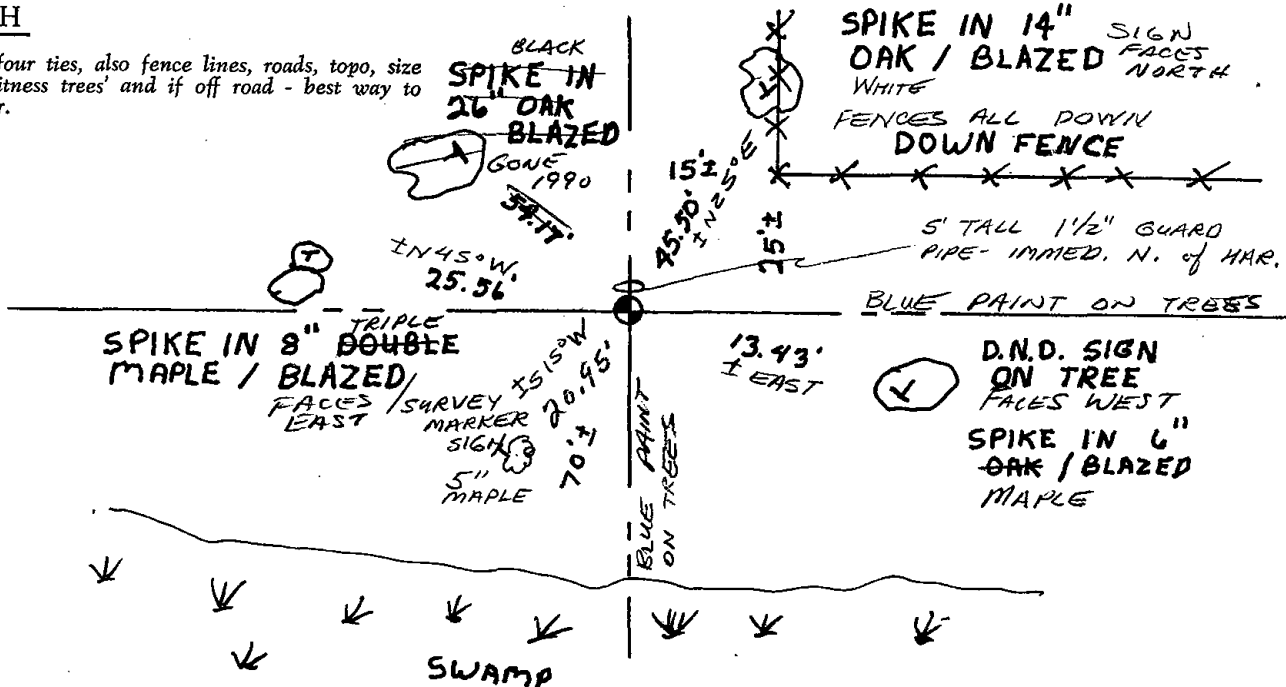 H
four ties, also fence lines, roads, topo, size
itness trees' and if off road - best way to
r.
BLACK
SPIKE IN
26" OAK
BLAZED
GONE
1990
54.17'
SPIKE IN 14"
OAK / BLAZED
WHITE
SIGN
FACES
NORTH
FENCES ALL DOWN
DOWN FENCE
15'±
45.50'
±N25°E
25'±
5' TALL 1 1/2" GUARD
PIPE- IMMED. N. of HAR.
±N45°W
25.56'
BLUE PAINT ON TREES
TRIPLE
SPIKE IN 8" DOUBLE
MAPLE / BLAZED/
FACES
EAST
/SURVEY
MARKER
SIGN
5"
MAPLE
±S15°W
20.95'
70'±
BLUE PAINT
ON TREES
13.43'
± EAST
D.N.D. SIGN
ON TREE
FACES WEST
SPIKE IN 6"
OAK / BLAZED
MAPLE
SWAMP